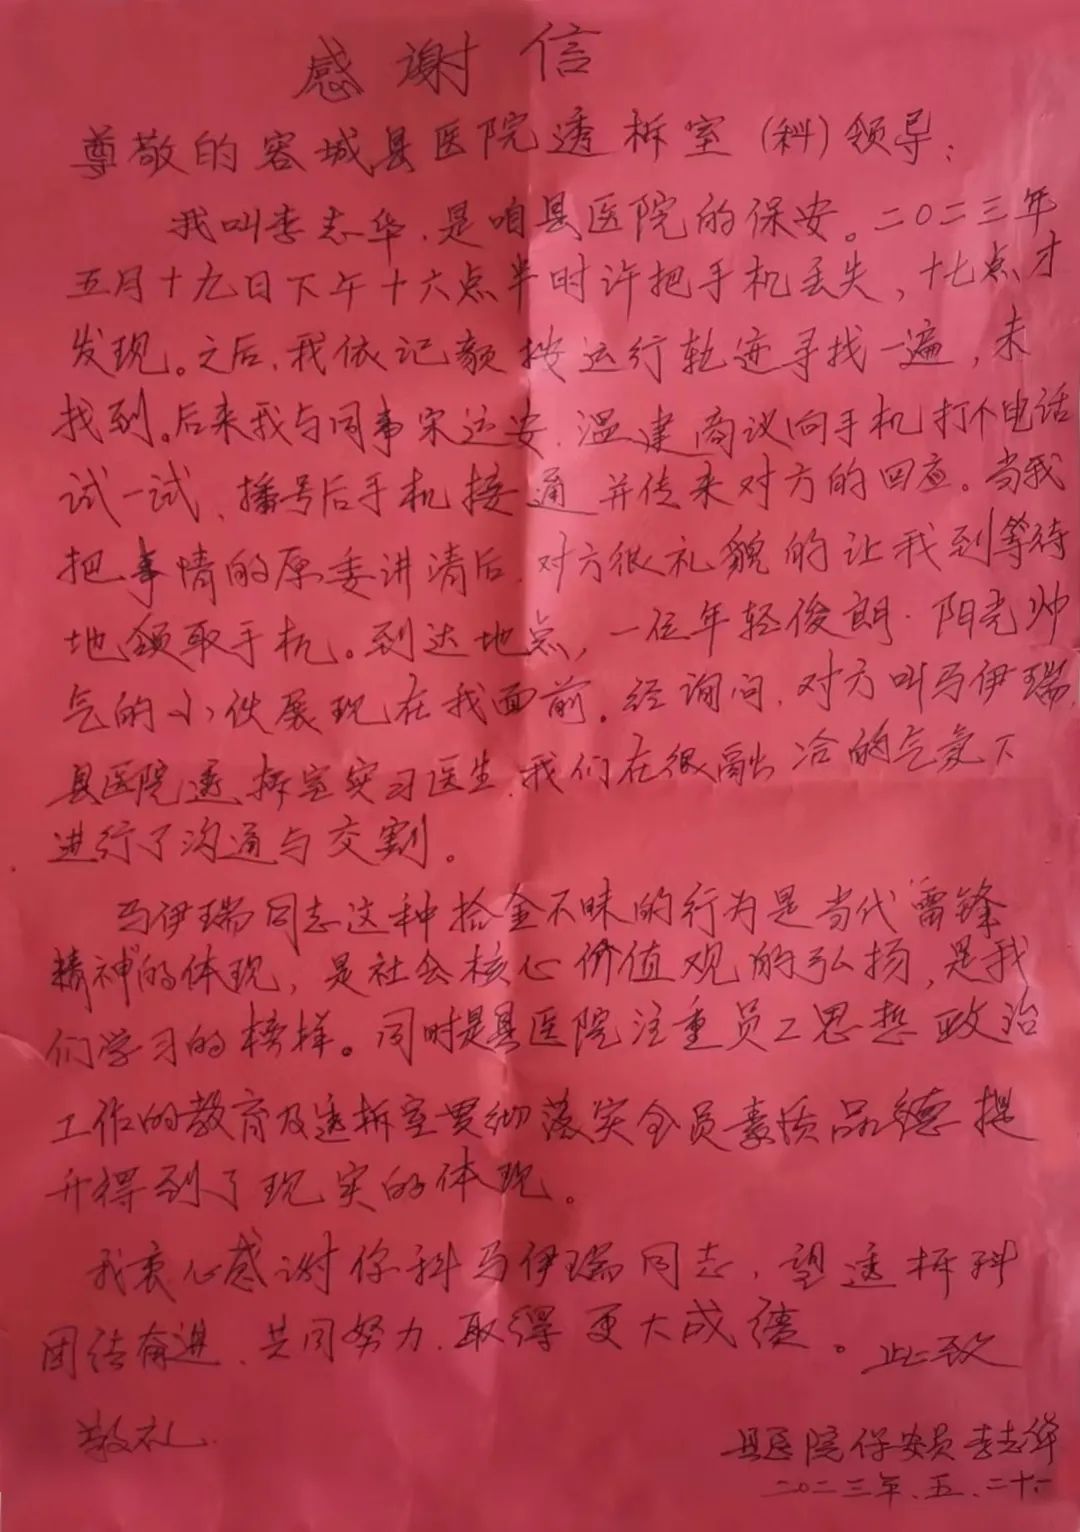 感谢信
尊敬的容城县医院透拆室(科)领导:
我叫李志华、是咱县医院的保安。二〇二三年
五月十九日下午十六点半时许把手机丢失，十七点才
发现。之后、我依记颜按运行轨迹寻找一遍，未
找到。后来我与同事宋运安、温建商议向手机打个电话
试一试、播号后手机接通并传来对方的回应。当我
把事情的原委讲清后、对方很礼貌的让我到等待
地领取手机。到达地点，一位年轻俊朗·阳光帅
气的小伙展现在我面前。经询问、对方叫马伊瑞,
县医院透拆室实习医生、我们在很融洽的气氛下
进行了沟通与交割。
马伊瑞同志这种拾金不昧的行为是当代“雷锋
精神”的体现，是社会核心价值观的弘扬，是我
们学习的榜样。同时是县医院注重员工思想政治
工作的教育及透拆室贯彻落实全员素质品德提
升得到了现实的体现。
我衷心感谢你科马伊瑞同志，望透拆科
团结奋进、共同努力、取得更大成绩。此致
敬礼
县医院保安员李志华
二〇二三年、五、二十